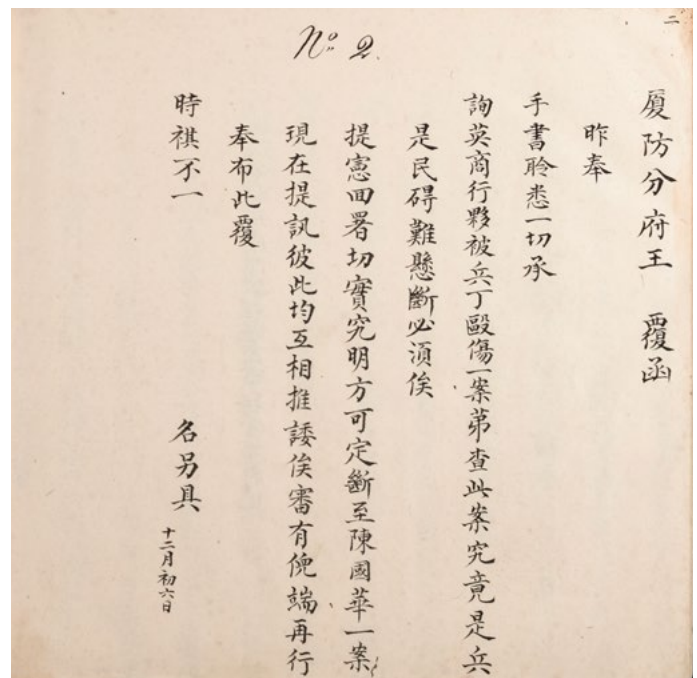 二
No. 2.
厦防分府王　覆函
昨奉
手書聆悉一切承
詢英商行夥被兵丁毆傷一案弟查此案究竟是兵
是民碍難懸斷必須俟
提憲回署切實究明方可定斷至陳國華一案
現在提訊彼此均互相推諉俟審有端再行
奉布此覆
時祺不一
名另具
十二月初六日